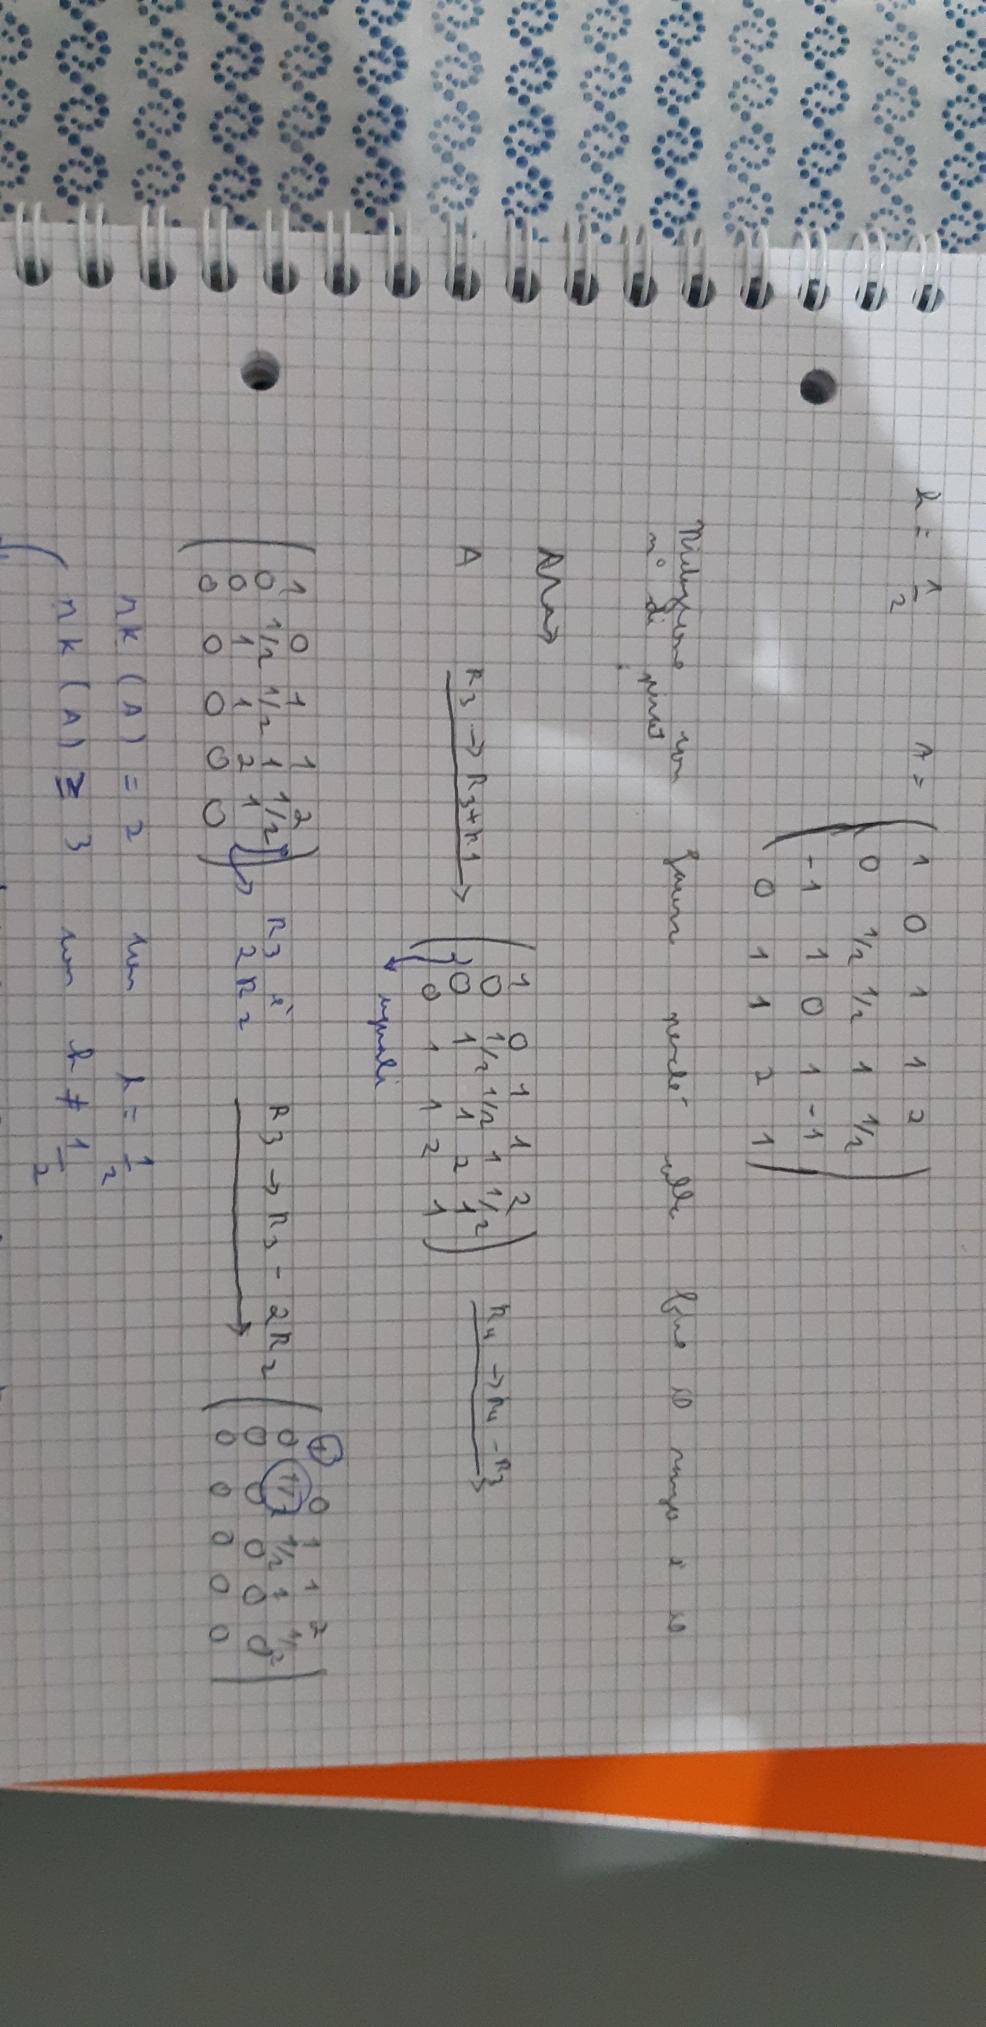 h = 1/2 A = ( 1 0 1 1 2
0 1/2 1/2 1 1/2
-1 1 0 1 -1
0 1 1 2 1 )
Riduzione con Gauss perché alla fine il rango è il
n° di pivot
A
A R3 → R3+R1 ( 1 0 1 1 2
0 1/2 1/2 1 1/2
0 1 1 2 1
0 1 1 2 1 ) R4 → R4 - R3
uguali
( 1 0 1 1 2
0 1/2 1/2 1 1/2
0 1 1 2 1
0 0 0 0 0 ) R3 è
2R2 R3 → R3 - 2R2 ( 1 0 1 1 2
0 1/2 1/2 1 1/2
0 0 0 0 0
0 0 0 0 0 )
rk (A) = 2 con h = 1/2
rk (A) ≥ 3 con h ≠ 1/2